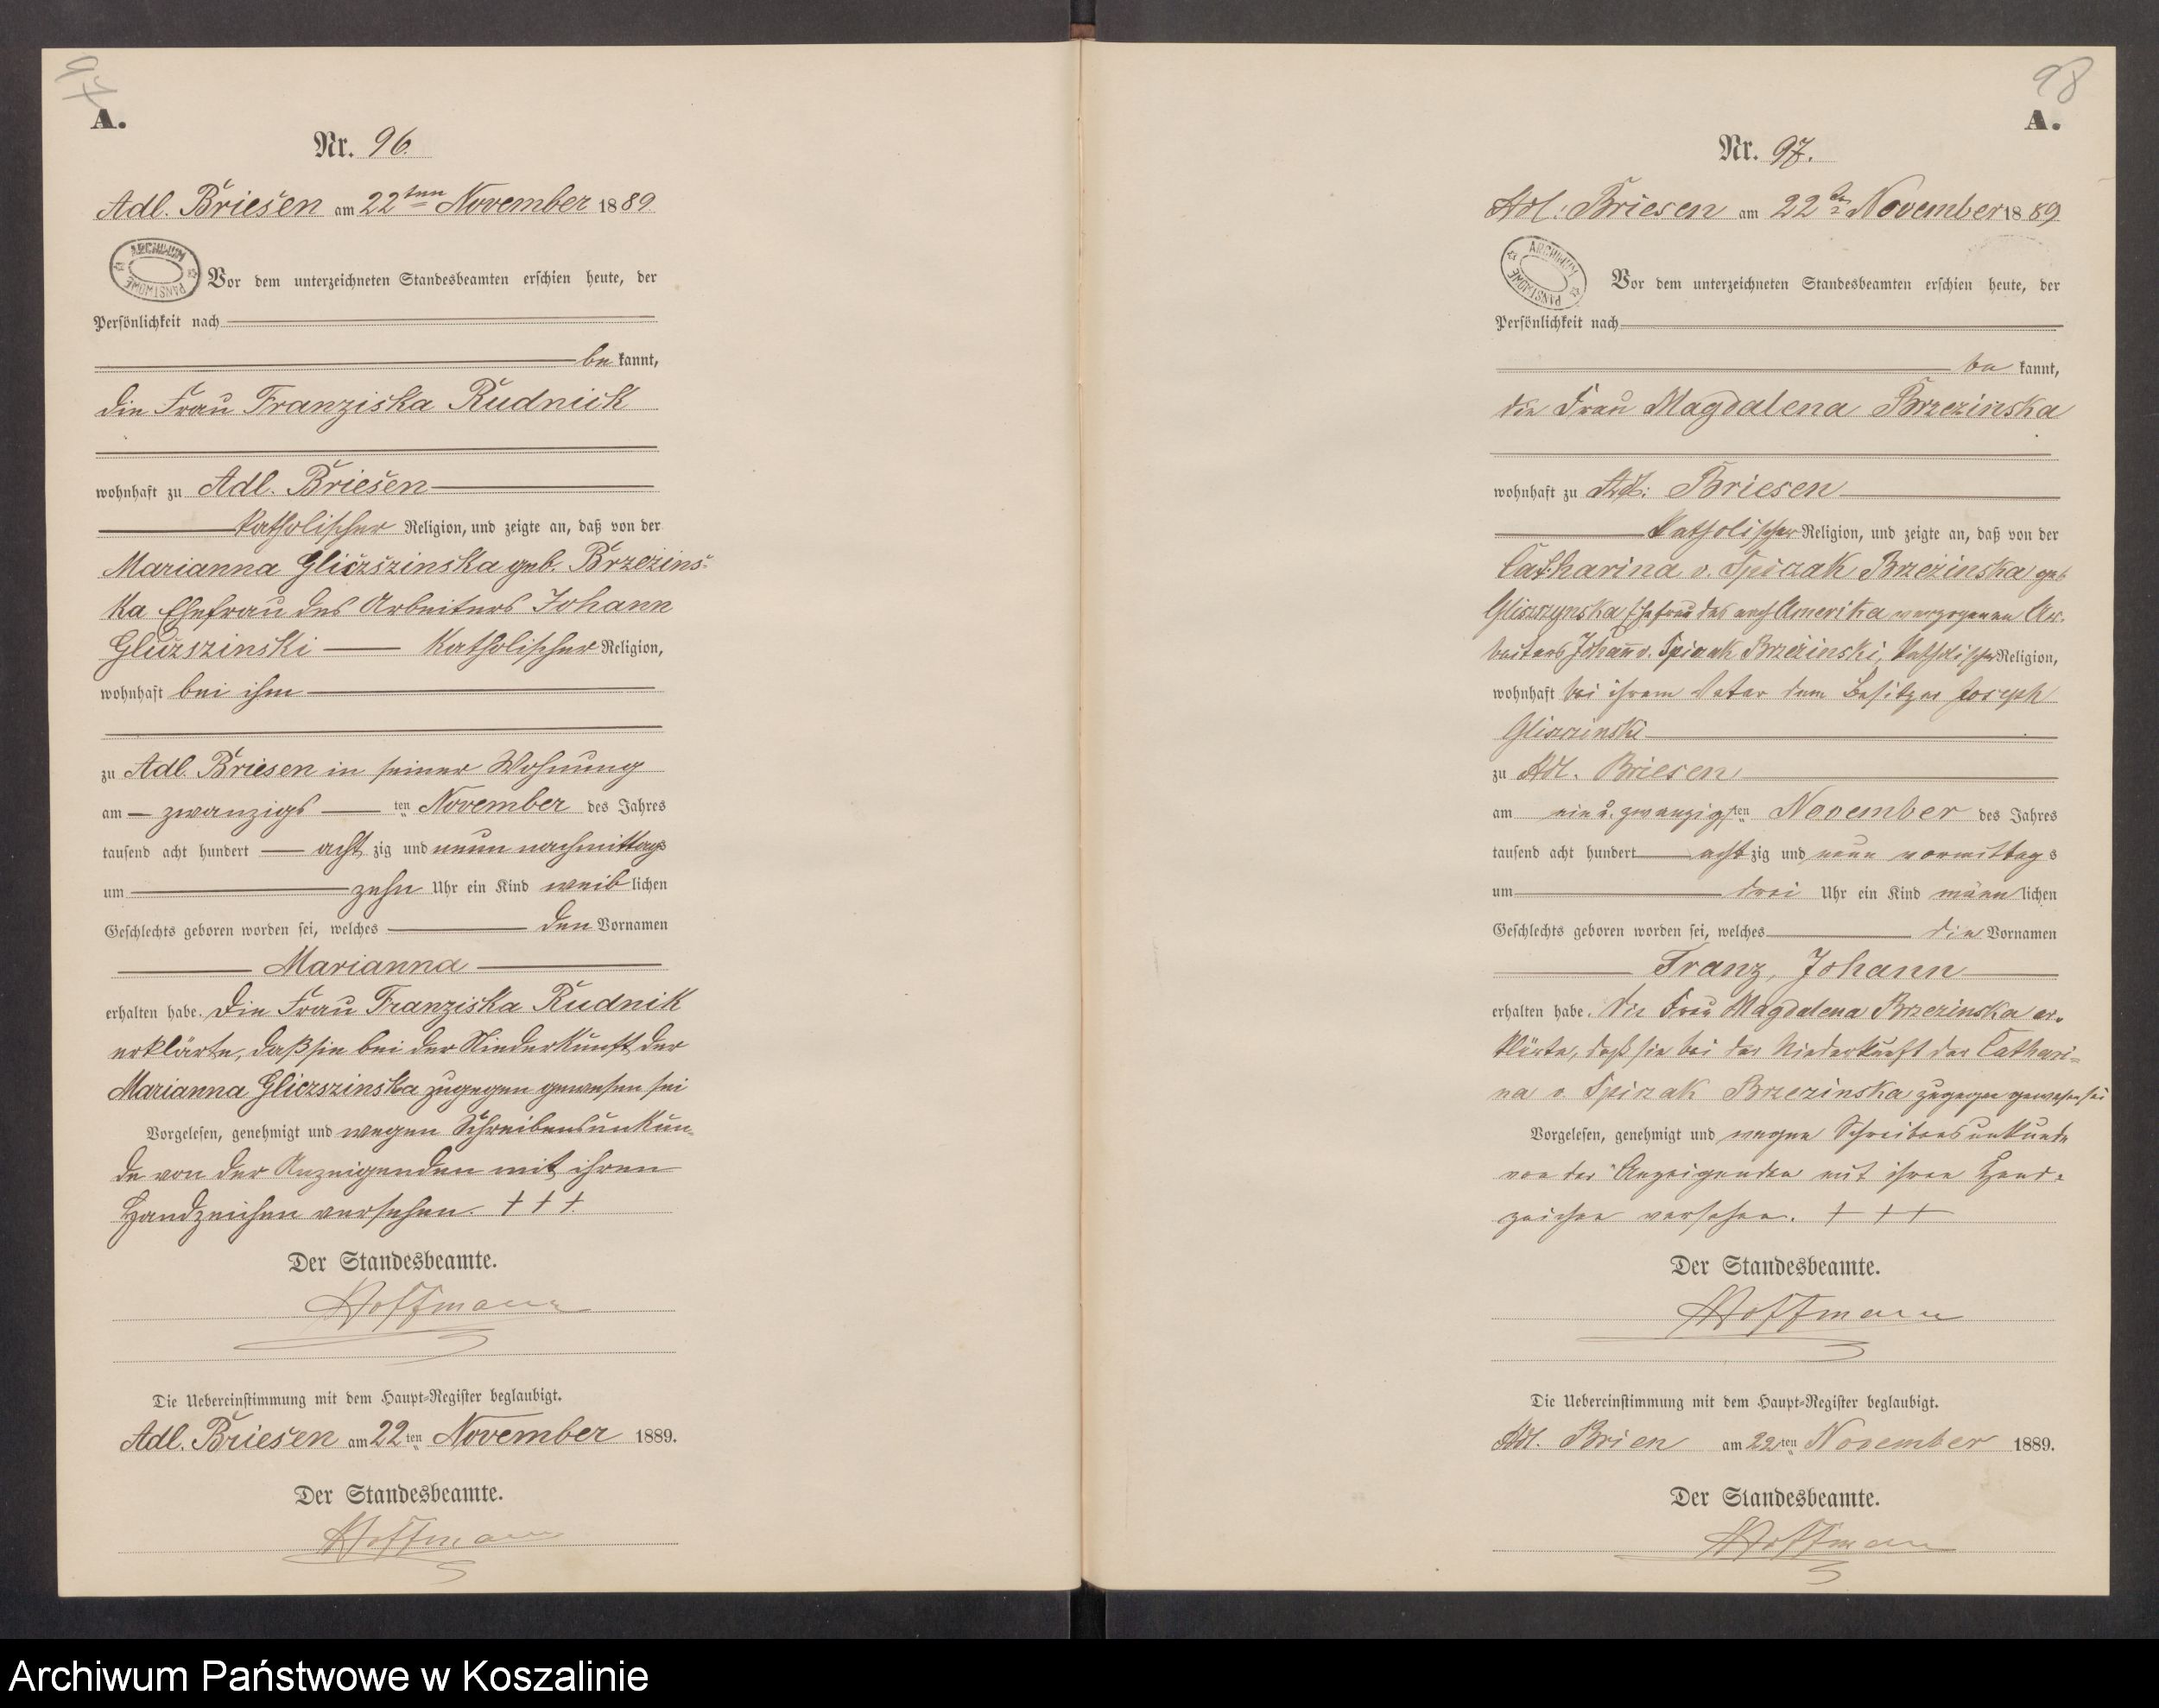 97
A.
Nr. 96.
Adl. Briesen am 22ten November 1889
ARCHIWUM PAŃSTWOWE
Vor dem unterzeichneten Standesbeamten erschien heute, der
Persönlichkeit nach
be kannt,
die Frau Franziska Rudnick
wohnhaft zu Adl. Briesen
katholischer Religion, und zeigte an, daß von der
Marianna Gliczszinska geb. Brzezins-
ka Ehefrau des Arbeiters Johann
Gliczszinski katholischer Religion,
wohnhaft bei ihm
zu Adl. Briesen in seiner Wohnung
am zwanzigs ten November des Jahres
tausend acht hundert acht zig und neun nachmittags
um zehn Uhr ein Kind weib lichen
Geschlechts geboren worden sei, welches den Vornamen
Marianna
erhalten habe. Die Frau Franziska Rudnik
erklärte, daß sie bei der Niederkunft der
Marianna Gliczszinska zugegen gewesen sei
Vorgelesen, genehmigt und wegen Schreibensunkun-
de von der Anzeigenden mit ihren
Handzeichen versehen. + + +.
Der Standesbeamte.
Hoffmann
Die Uebereinstimmung mit dem Haupt-Register beglaubigt.
Adl. Briesen am 22ten November 1889.
Der Standesbeamte.
Hoffmann
98
A.
Nr. 97.
Adl. Briesen am 22ten November 1889
ARCHIWUM PAŃSTWOWE
Vor dem unterzeichneten Standesbeamten erschien heute, der
Persönlichkeit nach
be kannt,
die Frau Magdalena Brzezinska
wohnhaft zu Adl. Briesen
katholischer Religion, und zeigte an, daß von der
Catharina v. Spiczak Brzezinska geb
Gliszzynska Ehefrau des nach Amerika verzogenen Ar-
beiters Johann v. Spiczak Brzezinski, katholischer Religion,
wohnhaft bei ihrem Vater dem Besitzer Joseph
Gliszzinski
zu Adl. Briesen
am ein u. zwanzigsten November des Jahres
tausend acht hundert acht zig und neun vormittags
um drei Uhr ein Kind männ lichen
Geschlechts geboren worden sei, welches die Vornamen
Franz, Johann
erhalten habe. Die Frau Magdalena Brzezinska er-
klärte, daß sie bei der Niederkunft der Cathari-
na v. Spiczak Brzezinska zugegen gewesen sei
Vorgelesen, genehmigt und wegen Schreibensunkunde
von der Anzeigenden mit ihren Hand-
zeichen versehen. + + +
Der Standesbeamte.
Hoffmann
Die Uebereinstimmung mit dem Haupt-Register beglaubigt.
Adl. Brien am 22ten November 1889.
Der Standesbeamte.
Hoffmann
Archiwum Państwowe w Koszalinie